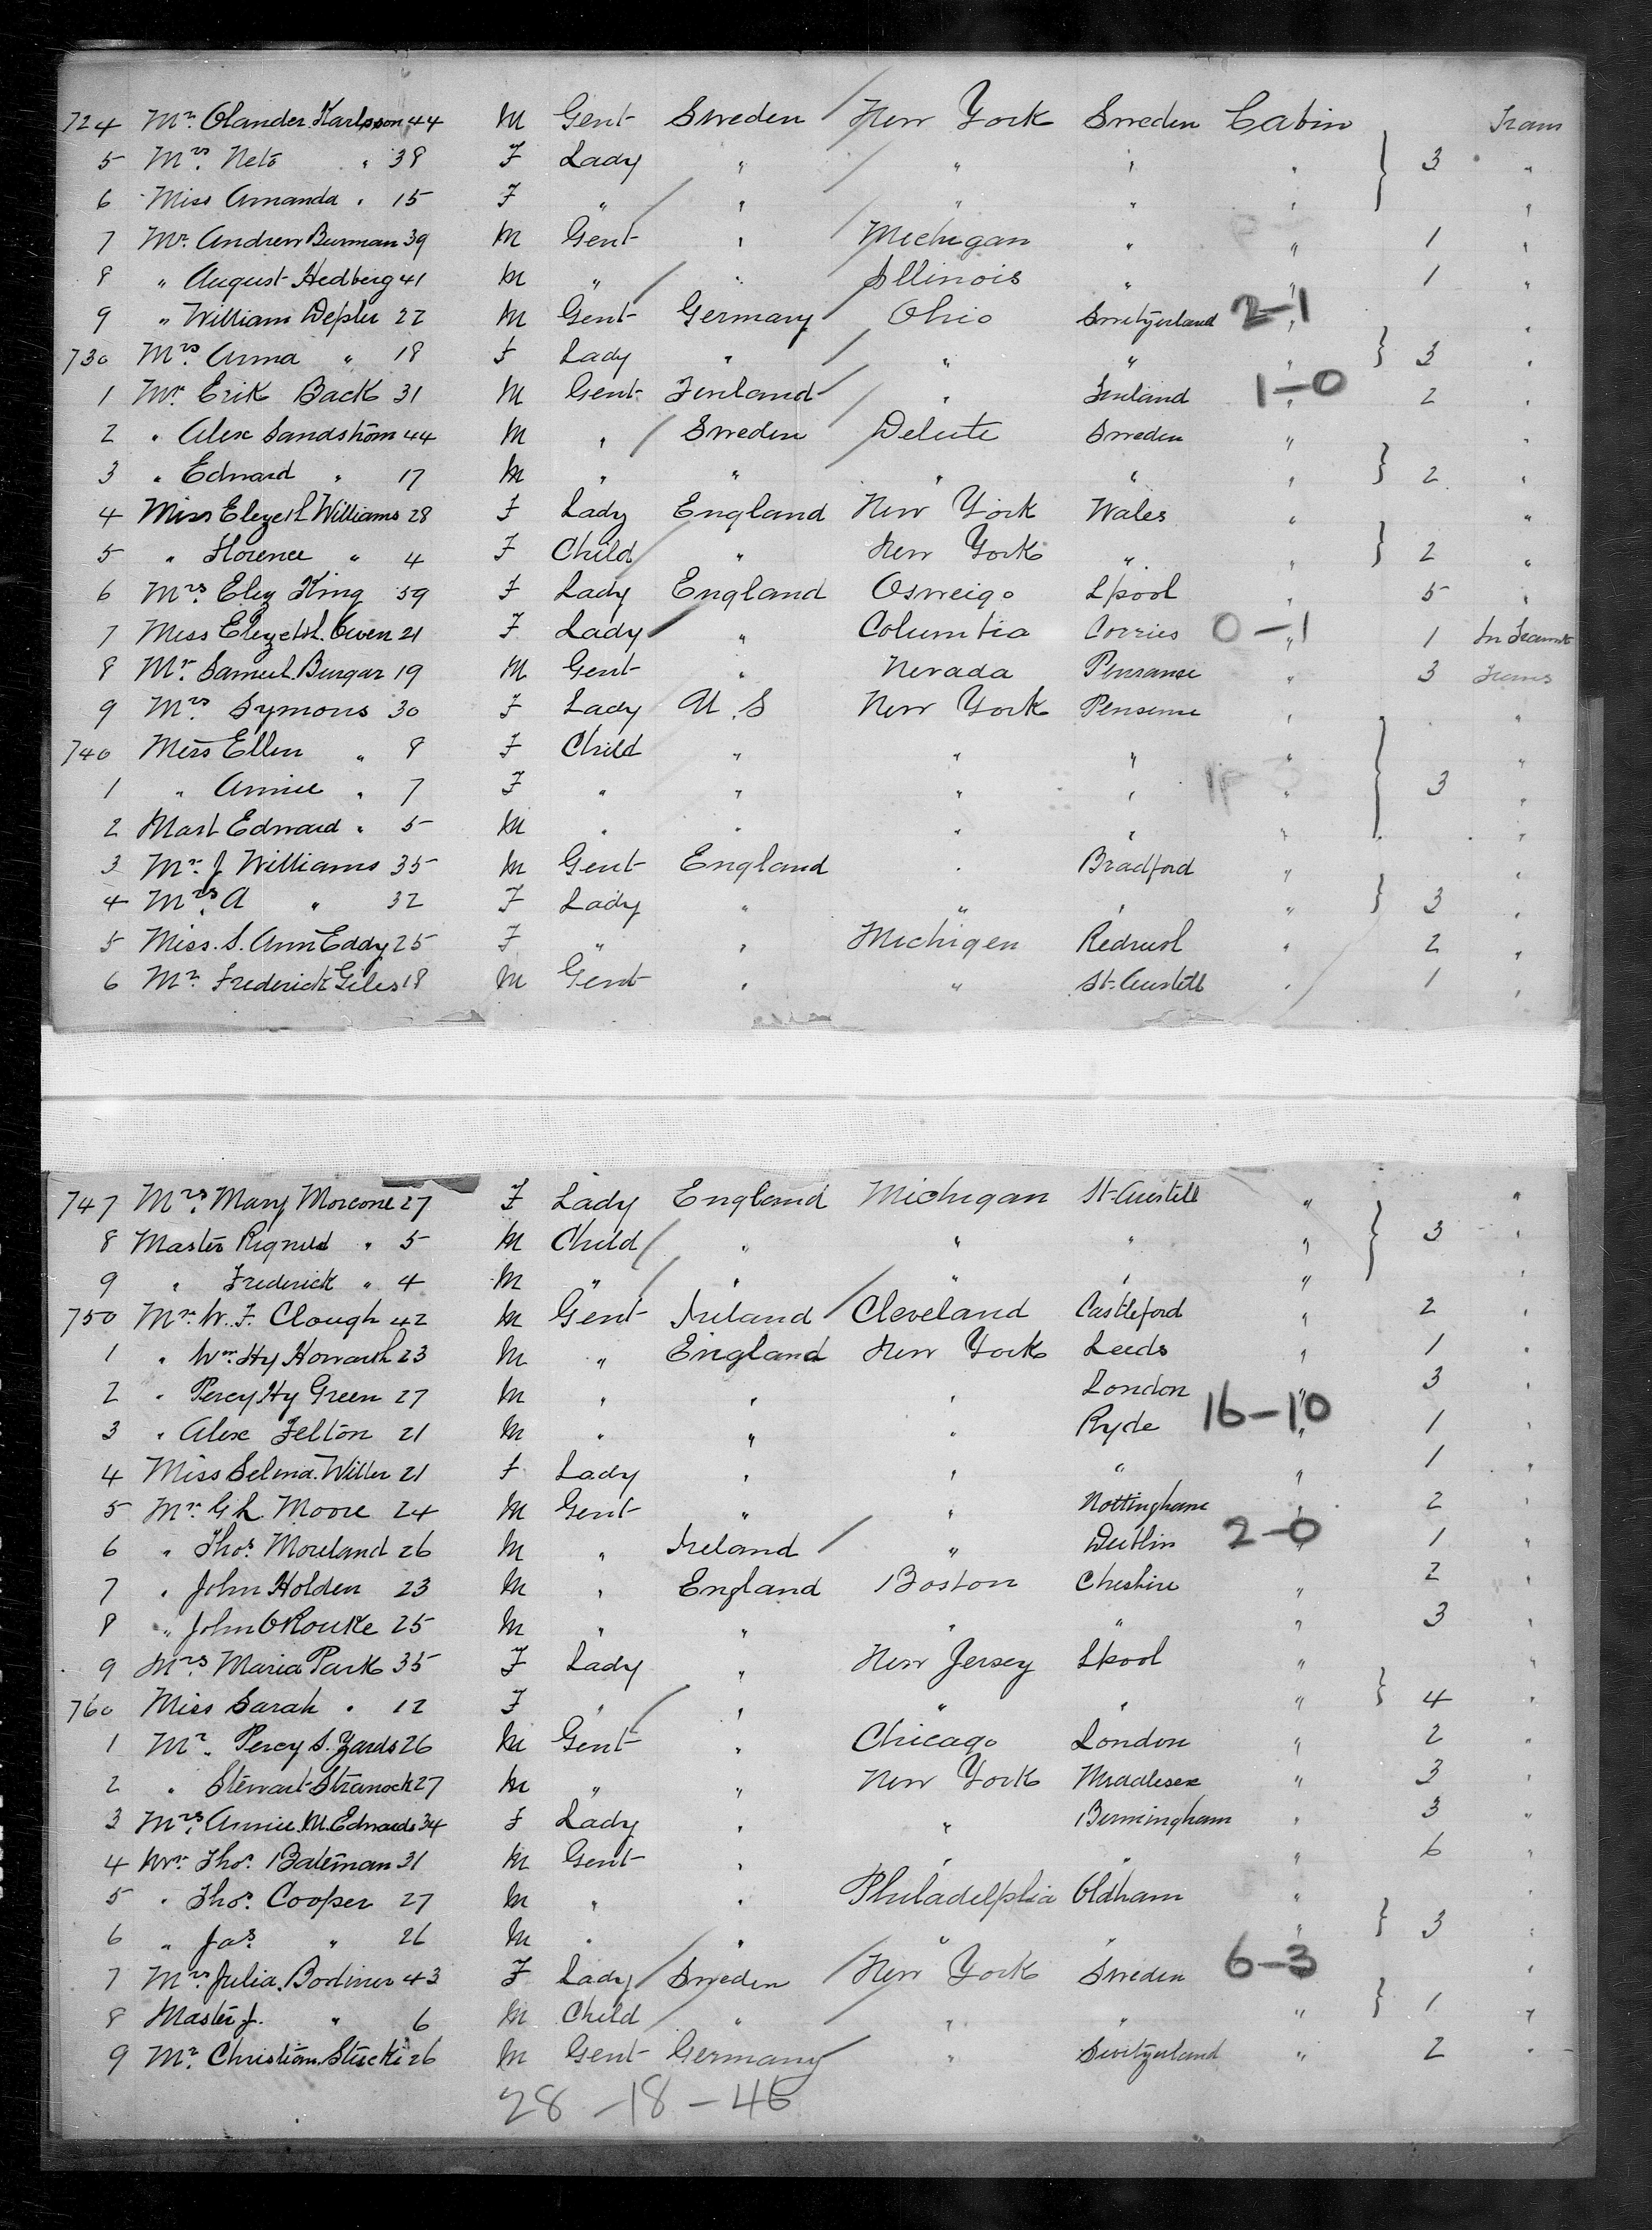 724 Mr. Olander Karlsson 44 M Gent Sweden / New York Sweden Cabin Trans
5 Mrs. Nets " 38 F Lady " / " " " } 3 "
6 Miss Amanda " 15 F " / " " " " "
7 Mr. Andrew Burman 39 M Gent " / Michigan " " 1 "
8 " August Hedberg 41 M " / " / Illinois " " 1 "
9 " William Depler 22 M Gent Germany Ohio Switzerland 2-1 " "
730 Mrs. Anna " 18 F Lady " / " " " } 3 "
1 Mr. Erik Back 31 M Gent Finland / " Finland 1-0 " 2 "
2 " Alex Sandström 44 M " / Sweden / Delute Sweden " "
3 " Edward " 17 M " " " " " } 2 "
4 Miss Elezeth Williams 28 F Lady England New York Wales " "
5 " Florence " 4 F Child / " New York " " } 2 "
6 Mrs. Eliz King 59 F Lady England Osweigo Lpool " 5 "
7 Miss Elezebt. Owen 21 F Lady " Columbia Corries 0-1 " 1
8 Mr. Samuel Burgar 19 M Gent " Nevada Penranse " 3 Trans
9 Mrs. Symons 30 F Lady U.S New York " "
740 Miss Ellen " 8 F Child " " " " "
1 " Annie " 7 F " " " " " } 3 "
2 Mast Edward " 5 M " " " " " "
3 Mr. J Williams 35 M Gent England " Bradford " "
4 Mrs. A " 32 F Lady " " " " } 3 "
5 Miss. S. Ann Eddy 25 F " " Michigen Redruth " 2 "
6 Mr. Frederick Giles 18 M Gent " " St. Austell " 1 "
747 Mrs. Mary Morcone 27 F Lady England Michigan St. Austell " "
8 Master " 5 M Child / " " " " } 3 "
9 " Frederick " 4 M " / " / " " " "
750 Mr. W. F. Clough 42 M Gent Ireland / Cleveland Castleford " 2 "
1 " Wm. Hy Howarth 23 M " England New York Leeds " 1 "
2 " Percy Hy Green 27 M " " " London " 3 "
3 " Alex Felton 21 M " " " Ryde 16-10 " 1 "
4 Miss Selena. Willer 21 F Lady " " " " 1 "
5 Mr. G L. Moore 24 M Gent " " Nottingham " 2 "
6 " Thos. Moreland 26 M " Ireland / " Dublin 2-0 " 1 "
7 " John Holden 23 M " England Boston Cheshire " 2 "
8 " John ORouke 25 M " " " " " 3 "
9 Mrs. Maria Park 35 F Lady " New Jersey Lpool " "
760 Miss Sarah " 12 F " / " " " " } 4 "
1 Mr. Percy S. Yards 26 M Gent " Chicago London " 2 "
2 " Stewart Stranock 27 M " " New York Middlesex " 3 "
3 Mrs. Annie. M. Edwards 34 F Lady " " Birmingham " 3 "
4 Mr. Thos. Bateman 31 M Gent " " " " 6 "
5 " Thos. Cooper 27 M " " Philadelphia Oldham " "
6 " Jas. " 26 M " " " " " } 3 "
7 Mrs. Julia. Bodiner 43 F Lady / Sweden / New York Sweden 6-3 " "
8 Master J. " 6 M Child / " / " " " } 1 "
9 Mr. Christian. Stucki 26 M Gent Germany / " Switzerland " 2 "
28 - 18 - 46